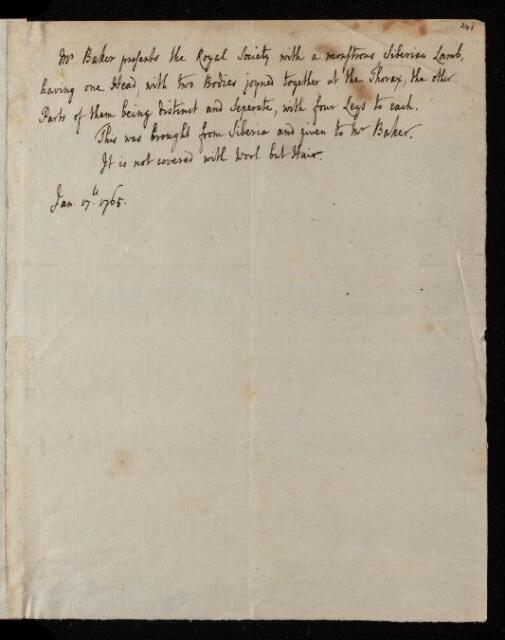 241
Mr Baker presents the Royal Society with a monstrous Siberian Lamb,
having one Head with two Bodies joyned together at the Thorax, the other
Parts of them being distinct and Seperate, with four Legs to each.
This was brought from Siberia and given to Mr Baker.
It is not covered with Wool but Hair.
Jan. 17th. 1765.